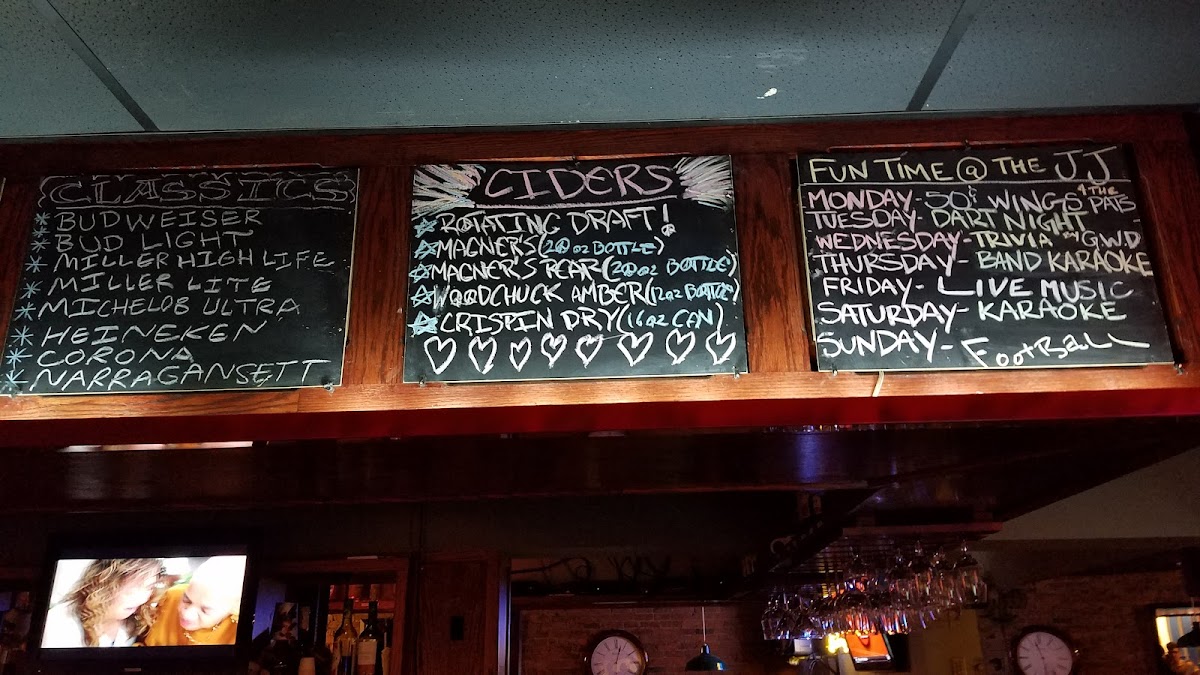 CLASSICS
BUDWEISER
BUD LIGHT
MILLER HIGH LIFE
MILLER LITE
MICHELOB ULTRA
HEINEKEN
CORONA
NARRAGANSETT
CIDERS
ROTATING DRAFT!
MAGNER'S (20oz BOTTLE)
MAGNER'S PEAR (20oz BOTTLE)
WOODCHUCK AMBER (12oz BOTTLE)
CRISPIN DRY (16oz CAN)
FUN TIME @ THE JJ
MONDAY- 50¢ WINGS 4 THE PATS
TUESDAY- DART NIGHT
WEDNESDAY- TRIVIA GWD
THURSDAY- BAND KARAOKE
FRIDAY- LIVE MUSIC
SATURDAY- KARAOKE
SUNDAY- FOOTBALL